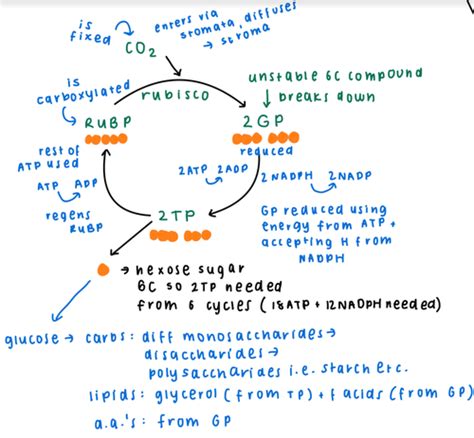 is fixed
CO2
enters via
stomata, diffuses
→ stroma
is
carboxylated
RUBP
rubisco
unstable 6C compound
↓ breaks down
2GP
reduced
rest of
ATP used
ATP ADP
regens
RUBP
2ATP 2ADP
2NADPH 2NADP
2TP
GP reduced using
energy from ATP +
accepting H from
NADPH
→ hexose sugar
6C so 2TP needed
from 6 cycles (18ATP + 12NADPH needed)
glucose → carbs: diff monosaccharides →
disaccharides →
polysaccharides i.e. starch etc.
lipids: glycerol (from TP) + f acids (from GP)
a.a.'s: from GP